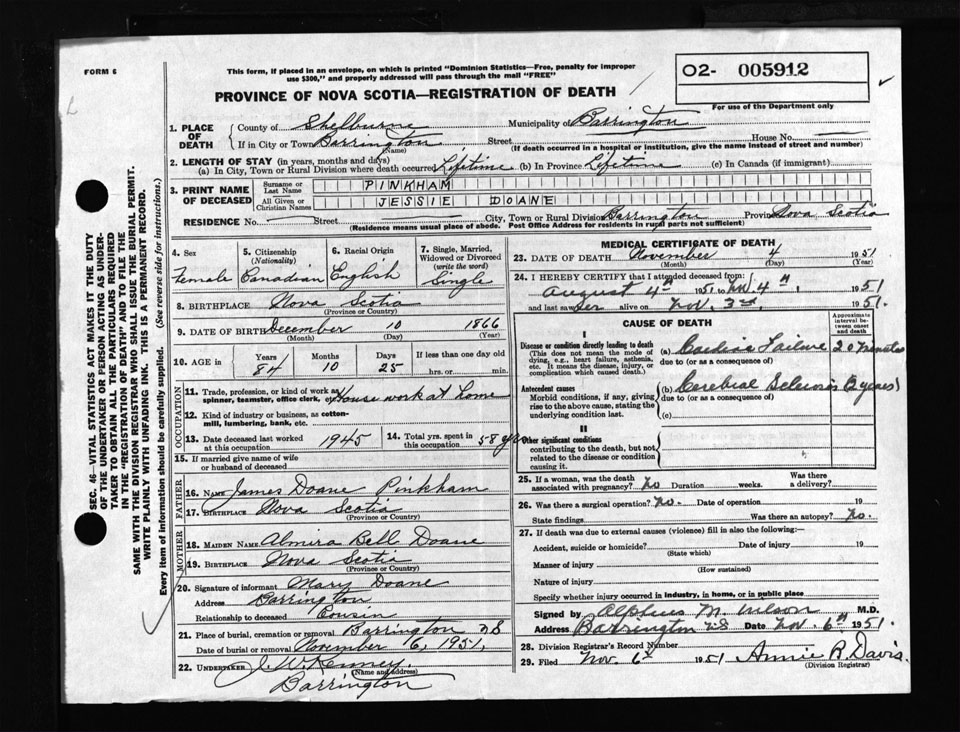 FORM 6
This form, if placed in an envelope, on which is printed "Dominion Statistics—Free, penalty for improper
use $300," and properly addressed will pass through the mail "FREE"
O2- 005912
For use of the Department only
PROVINCE OF NOVA SCOTIA—REGISTRATION OF DEATH
1. PLACE OF DEATH { County of Shelburne Municipality of Barrington
If in City or Town Barrington (Name) Street House No.
(If death occurred in a hospital or institution, give the name instead of street and number)
2. LENGTH OF STAY (in years, months and days)
(a) In City, Town or Rural Division where death occurred Lifetime (b) In Province Lifetime (c) In Canada (if immigrant)
3. PRINT NAME OF DECEASED { Surname or Last Name PINKHAM
All Given or Christian Names JESSIE DOANE
RESIDENCE No. Street City, Town or Rural Division Barrington Province Nova Scotia
(Residence means usual place of abode. Post Office Address for residents in rural parts not sufficient)
4. Sex Female
5. Citizenship (Nationality) Canadian
6. Racial Origin English
7. Single, Married, Widowed or Divorced (write the word) Single
8. BIRTHPLACE Nova Scotia
(Province or Country)
9. DATE OF BIRTH December 10 1866
(Month) (Day) (Year)
10. AGE in { Years 84 Months 10 Days 25 If less than one day old
hrs. or min.
OCCUPATION
11. Trade, profession, or kind of work as spinner, teamster, office clerk, etc. House work at home
12. Kind of industry or business, as cotton-mill, lumbering, bank, etc.
13. Date deceased last worked at this occupation 1945
14. Total yrs. spent in this occupation 58 yrs
15. If married give name of wife or husband of deceased
FATHER
16. Name James Doane Pinkham
17. BIRTHPLACE Nova Scotia
(Province or Country)
MOTHER
18. MAIDEN NAME Almira Bell Doane
19. BIRTHPLACE Nova Scotia
(Province or Country)
20. Signature of informant Mary Doane
Address Barrington
Relationship to deceased Cousin
21. Place of burial, cremation or removal Barrington NS
Date of burial or removal November 6, 1951,
22. UNDERTAKER J. W. Kenney,
(Name and address)
Barrington
MEDICAL CERTIFICATE OF DEATH
23. DATE OF DEATH November 4 1951
(Month) (Day) (Year)
24. I HEREBY CERTIFY that I attended deceased from:
August 4th 1951 to Nov. 4th, 1951
and last saw her alive on Nov. 3rd. 1951.
CAUSE OF DEATH
Approximate interval between onset and death
I
Disease or condition directly leading to death (a) Cardiac Failure 20 minutes
(This does not mean the mode of dying, e.g., heart failure, asthenia, etc. It means the disease, injury, or complication which caused death.)
due to (or as a consequence of)
Antecedent causes (b) Cerebral Sclerosis (2 years)
Morbid conditions, if any, giving rise to the above cause, stating the underlying condition last.
due to (or as a consequence of)
(c)
II
Other significant conditions
contributing to the death, but not related to the disease or condition causing it.
25. If a woman, was the death associated with pregnancy? No Duration weeks. Was there a delivery?
26. Was there a surgical operation? No. Date of operation 19
State findings Was there an autopsy? No.
27. If death was due to external causes (violence) fill in also the following:—
Accident, suicide or homicide? Date of injury 19
(State which)
Manner of injury
(How sustained)
Nature of injury
Specify whether injury occurred in industry, in home, or in public place
Signed by Alpheus M. Wilson M.D.
Address Barrington NS Date Nov. 6th 1951.
28. Division Registrar's Record Number
29. Filed Nov. 6th 1951 Annie R. Davis.
(Division Registrar)
SEC. 46—VITAL STATISTICS ACT MAKES IT THE DUTY
OF THE UNDERTAKER OR PERSON ACTING AS UNDER-
TAKER TO OBTAIN ALL THE PARTICULARS REQUIRED
IN THE "REGISTRATION OF DEATH" AND TO FILE THE
SAME WITH THE DIVISION REGISTRAR WHO SHALL ISSUE THE BURIAL PERMIT.
WRITE PLAINLY WITH UNFADING INK. THIS IS A PERMANENT RECORD.
Every item of information should be carefully supplied. (See reverse side for instructions.)